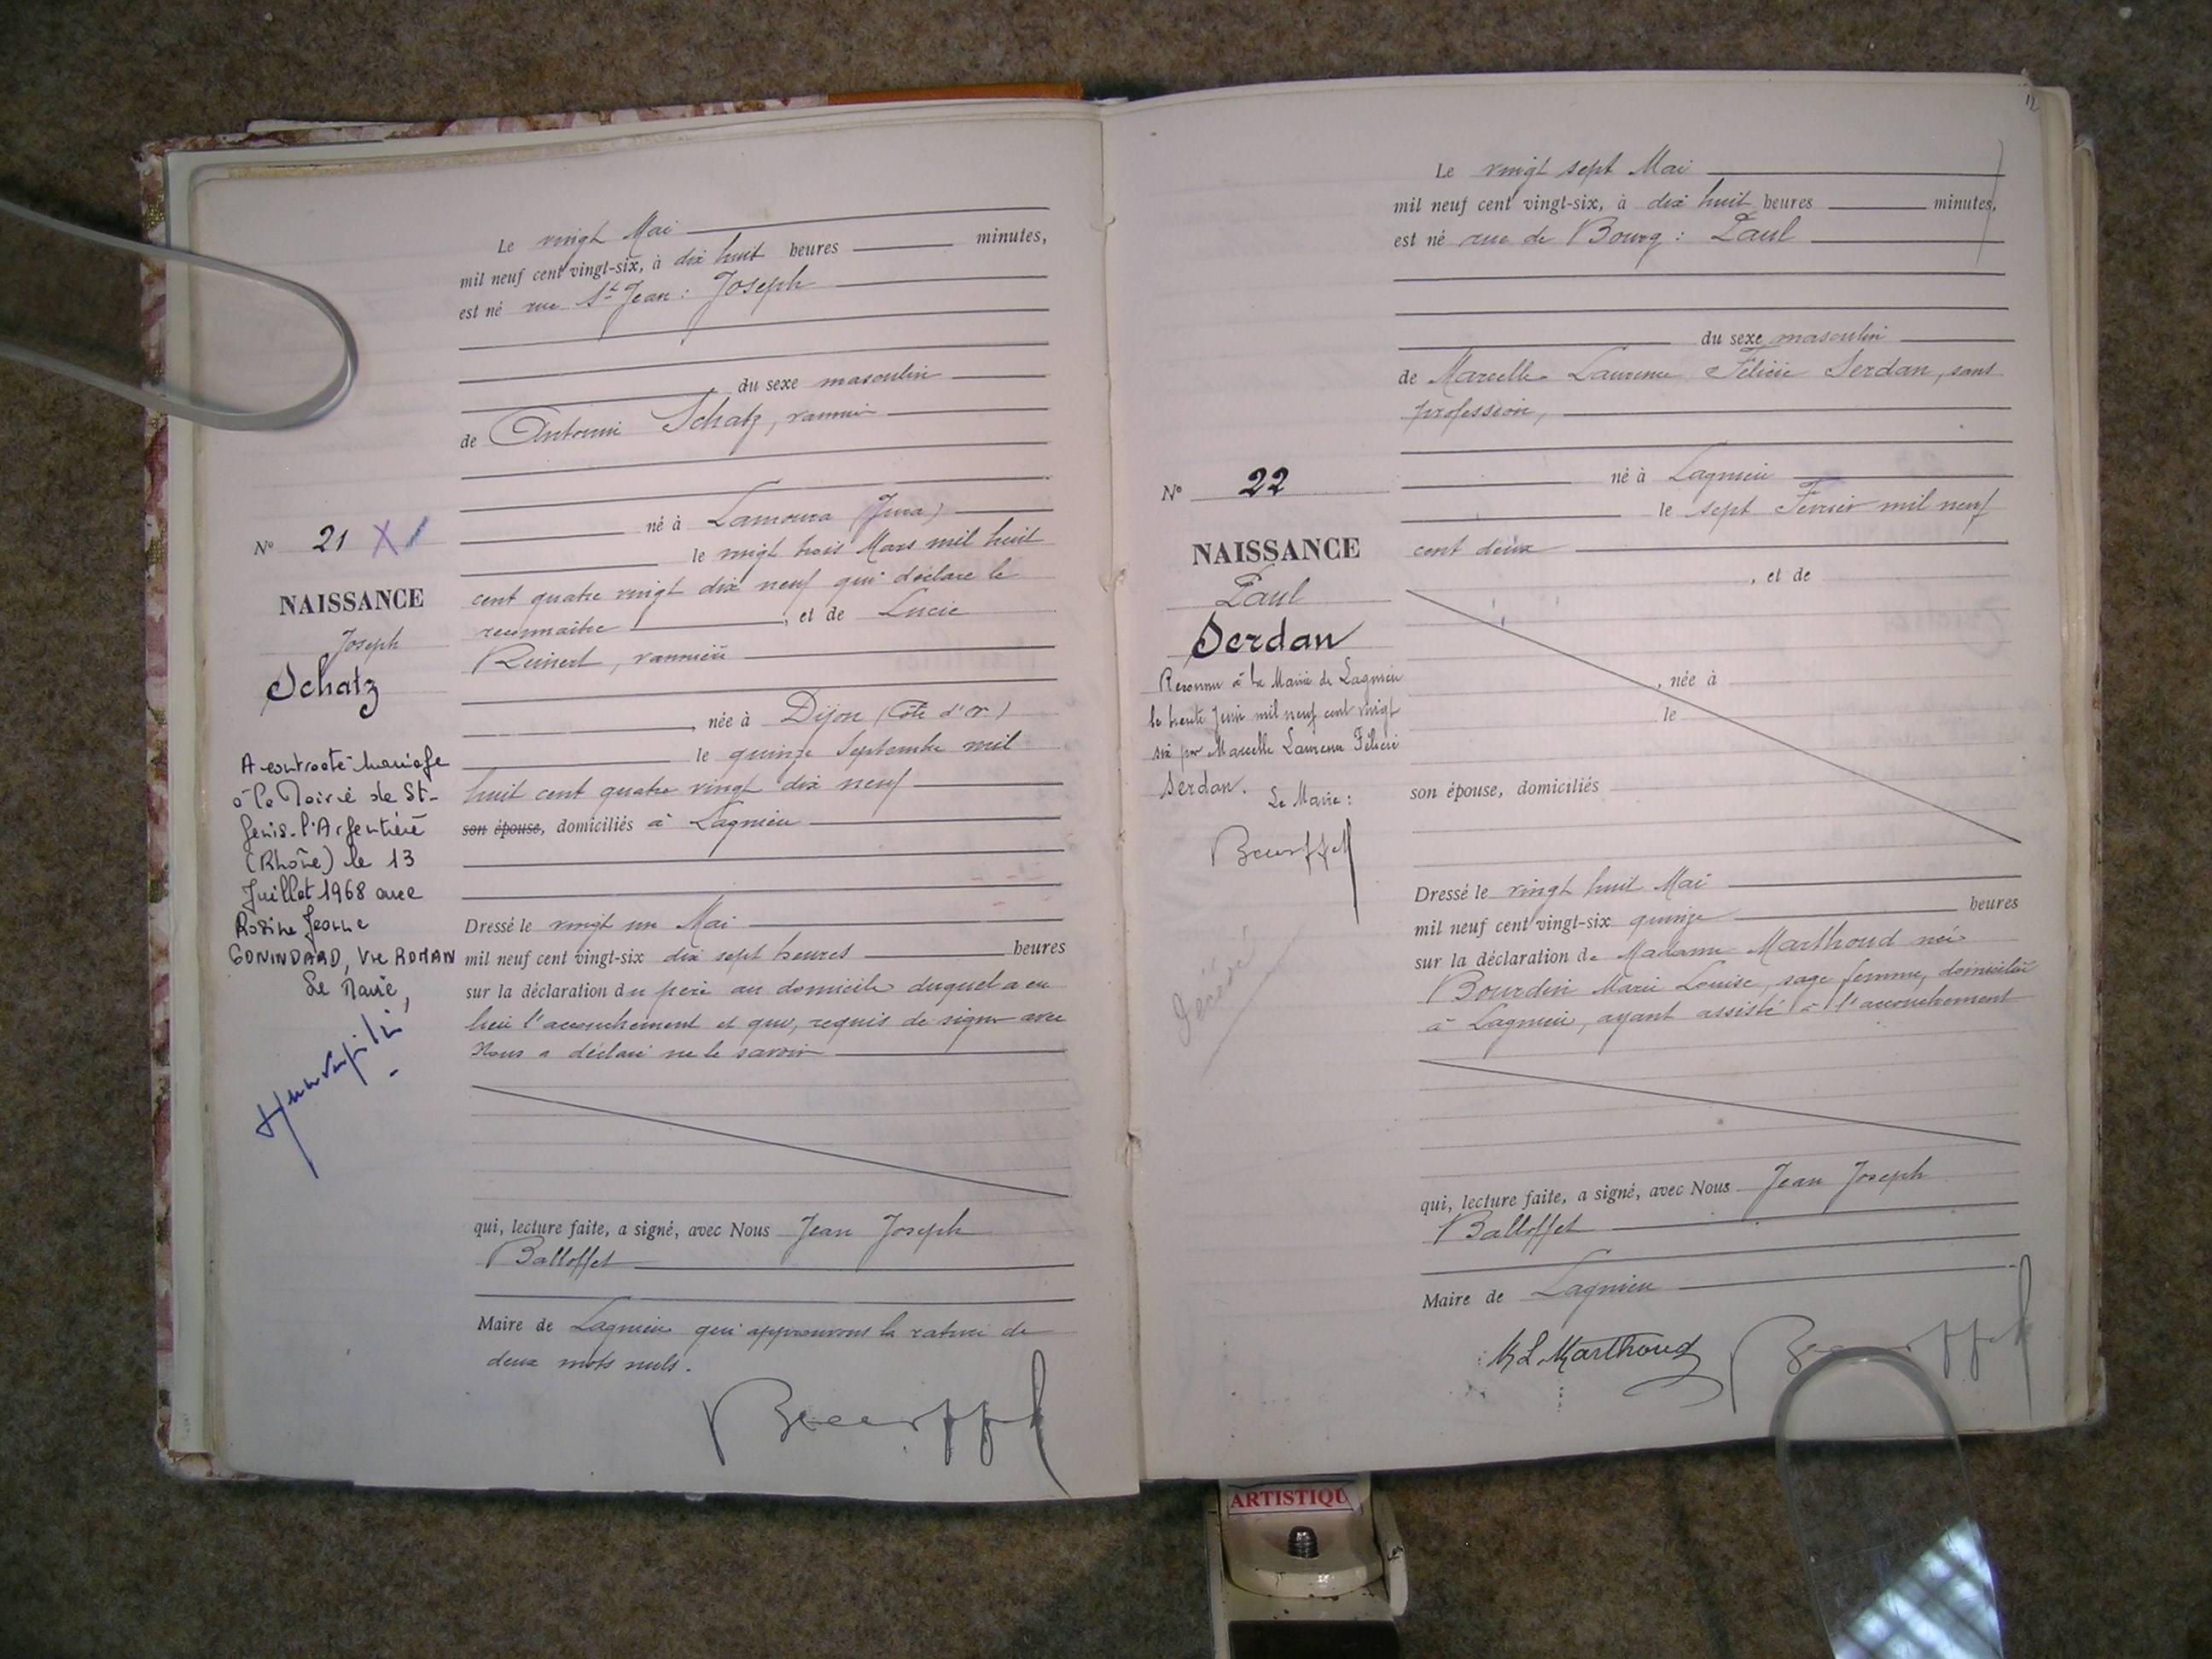 Le vingt Mai
mil neuf cent vingt-six, à dix huit heures minutes,
est né rue St Jean : Joseph
du sexe masculin
de Antonin Schatz, vannier
né à Lamoura (Jura)
le vingt trois Mars mil huit
cent quatre vingt dix neuf qui déclare le
reconnaître, et de Lucie
Reinert, vannière
née à Dijon (Côte d'Or)
le quinze Septembre mil
huit cent quatre vingt dix neuf
son épouse, domiciliés à Lagnieu
Dressé le vingt un Mai
mil neuf cent vingt-six dix sept heures heures
sur la déclaration du père au domicile duquel a eu
lieu l'accouchement et qui, requis de signer avec
Nous a déclaré ne le savoir
qui, lecture faite, a signé, avec Nous Jean Joseph
Balloffet
Maire de Lagnieu qui approuvons la rature de
deux mots nuls.
No 21 X
NAISSANCE
Joseph
Schatz
A contracté mariage
à la Mairie de St-
Genis-l'Argentière
(Rhône) le 13
Juillet 1968 avec
Rosine Jeanne
GONINDARD, Vve ROMAN
Le Maire,
12
Le vingt sept Mai
mil neuf cent vingt-six, à dix huit heures minutes,
est né rue de Bourg : Paul
du sexe masculin
de Marcelle Laurence Félicie Serdan, sans
profession,
né à Lagnieu
le sept Février mil neuf
cent deux
, et de
, née à
le
son épouse, domiciliés
Dressé le vingt huit Mai
mil neuf cent vingt-six quinze heures
sur la déclaration de Madame Marthoud née
Bourdin Marie Louise, sage femme, domiciliée
à Lagnieu, ayant assisté à l'accouchement
qui, lecture faite, a signé, avec Nous Jean Joseph
Balloffet
Maire de Lagnieu
M L Marthoud
No 22
NAISSANCE
Paul
Serdan
Reconnu à la Mairie de Lagnieu
le trente Juin mil neuf cent vingt
six par Marcelle Laurence Félicie
Serdan. Le Maire :
décédé
ARTISTIQU